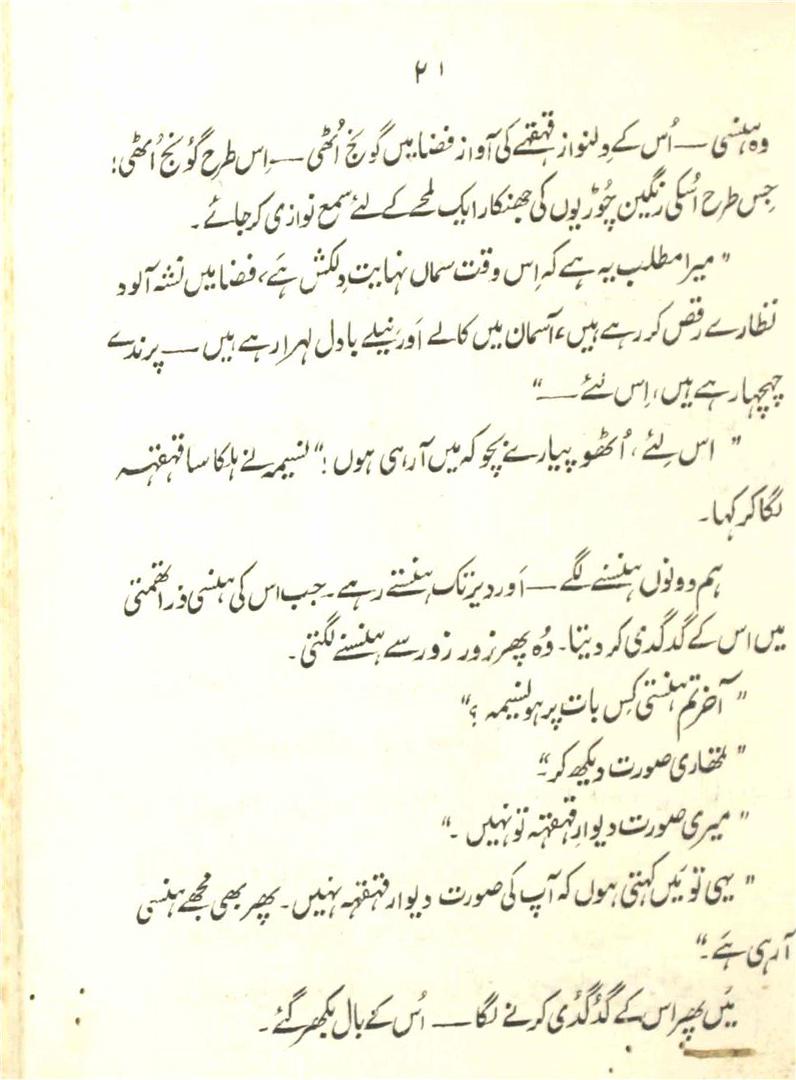 ۲۱
وہ ہنسی — اُس کے دِلنواز قہقہے کی آواز فضا میں گونج اُٹھی — اِس طرح گونج اُٹھی؛
جِس طرح اسُکی رنگین چُوڑیوں کی جھنکار ایک لمحے کے لئے سمع نوازی کر جائے۔
"میرا مطلب یہ ہے کہ اِس وقت سماں نہایت دِلکش ہَے، فضا میں نشہ آلود
نظارے رقص کر رہے ہیں، آسمان میں کالے اَور نیلے بادل لہرا رہے ہیں — پرندے
چہچہا رہے ہیں، اِس لئے —"
"اس لِئے، اُٹھو پیارے بچو کہ میں آ رہی ہوں!" نسیمہ نے ہلکا سا قہقہہ
لگا کر کہا۔
ہم دونوں ہنسنے لگے — اَور دیر تک ہنستے رہے۔ جب اس کی ہنسی ذرا تھمتی
میں اس کے گدگدی کر دیتا۔ وُہ پھر زور زور سے ہنسنے لگتی۔
"آخر تم ہنستی کِس بات پر ہو نسیمہ؟"
"تمھاری صورت دیکھ کر۔"
"میری صورت دیوارِ قہقہہ تو نہیں۔"
"یہی تو مَیں کہتی ہوں کہ آپ کی صورت دیوار قہقہہ نہیں۔ پھر بھی مجھے ہنسی
آ رہی ہَے۔"
مَیں پھر اس کے گُدگُدی کرنے لگا — اُس کے بال بکھر گئے۔